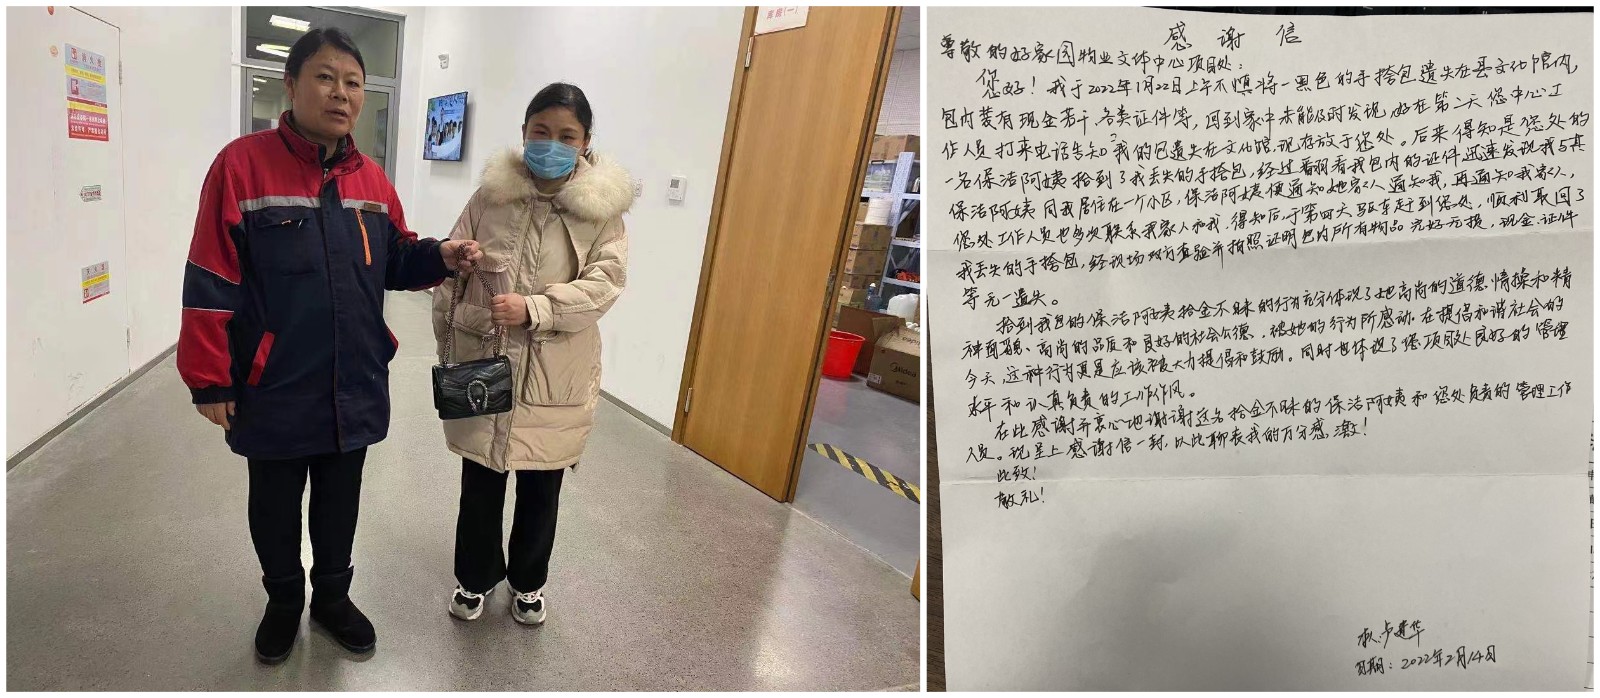 库房(一)
Midea
感谢信
尊敬的好家园物业文体中心项目处:
您好!我于2022年1月22日上午不慎将一黑色的手挎包遗失在县文化馆内,
包内装有现金若干、各类证件等,回到家中未能及时发现,好在第二天您中心工
作人员打来电话告知我的包遗失在文化馆,现存放于您处。后来得知是您处的
一名保洁阿姨拾到了我丢失的手挎包,经过翻看我包内的证件迅速发现我与其
保洁阿姨同我居住在一个小区,保洁阿姨便通知她家人通知我,再通知我家人,
您处工作人员也多次联系我家人和我,得知后,于第四天驱车赶到您处,顺利取回了
我丢失的手挎包,经现场双方查验并拍照证明包内所有物品完好无损,现金、证件
等无一遗失。
拾到我包的保洁阿姨拾金不昧的行为充分体现了她高尚的道德情操和精
神面貌、高尚的品质和良好的社会公德,被她的行为所感动。在提倡和谐社会的
今天,这种行为更是应该被大力提倡和鼓励。同时也体现了您项目处良好的管理
水平和认真负责的工作作风。
在此感谢并衷心地谢谢这名拾金不昧的保洁阿姨和您处负责的管理工作
人员。现呈上感谢信一封,以此聊表我的万分感激!
此致!
敬礼!
卢建华
日期:2022年2月14日